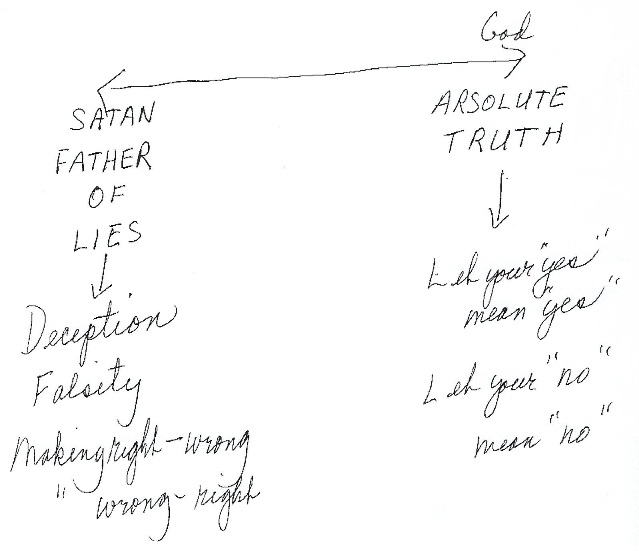 God
SATAN
FATHER
OF
LIES
Deception
Falsity
Making right - wrong
" wrong - right
ABSOLUTE
TRUTH
Let your "yes"
mean "yes"
Let your "no"
mean "no"